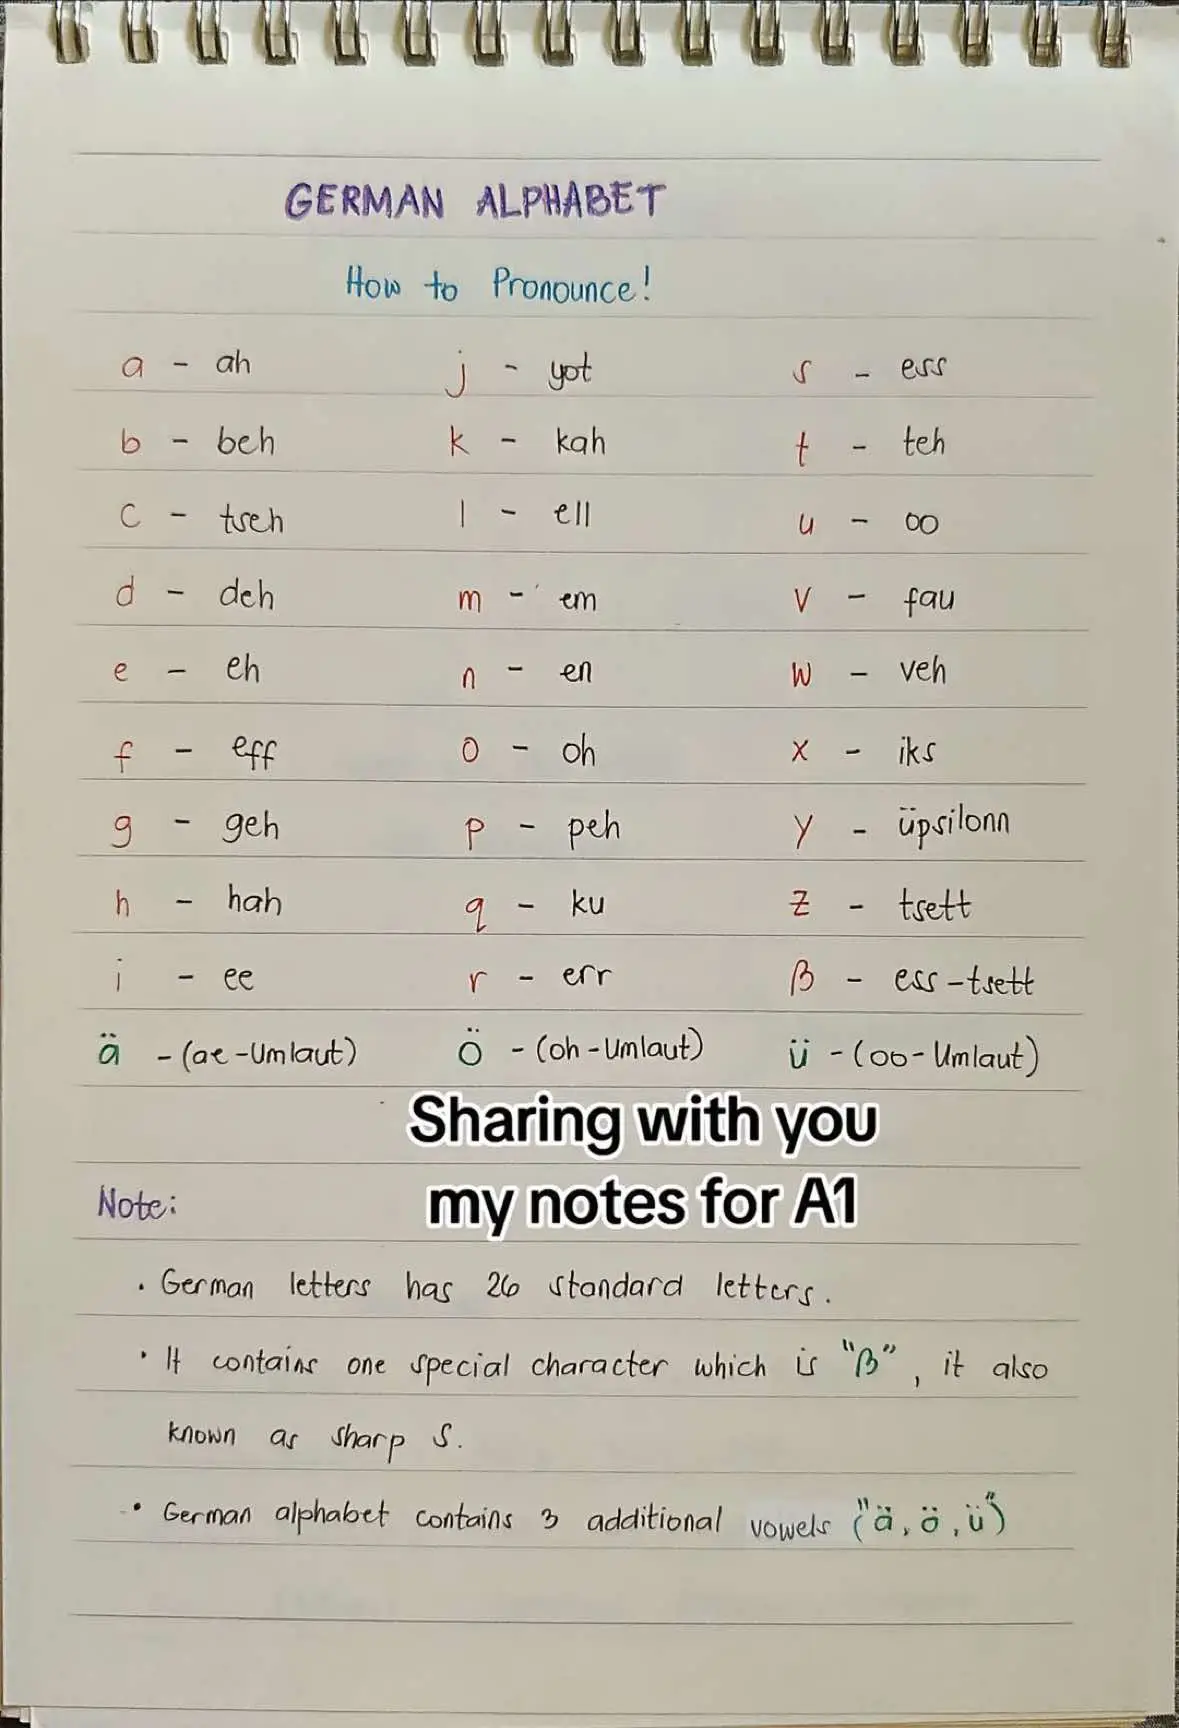 GERMAN ALPHABET
How to Pronounce!
a - ah
b - beh
c - tseh
d - deh
e - eh
f - eff
g - geh
h - hah
i - ee
j - yot
k - kah
l - ell
m - em
n - en
o - oh
p - peh
q - ku
r - err
s - ess
t - teh
u - oo
v - fau
w - veh
x - iks
y - üpsilonn
z - tsett
ß - ess-tsett
ä - (ae-Umlaut)
ö - (oh-Umlaut)
ü - (oo-Umlaut)
Sharing with you
my notes for A1
Note:
• German letters has 26 standard letters.
• It contains one special character which is "ß", it also
known as sharp s.
• German alphabet contains 3 additional vowels ("ä, ö, ü")